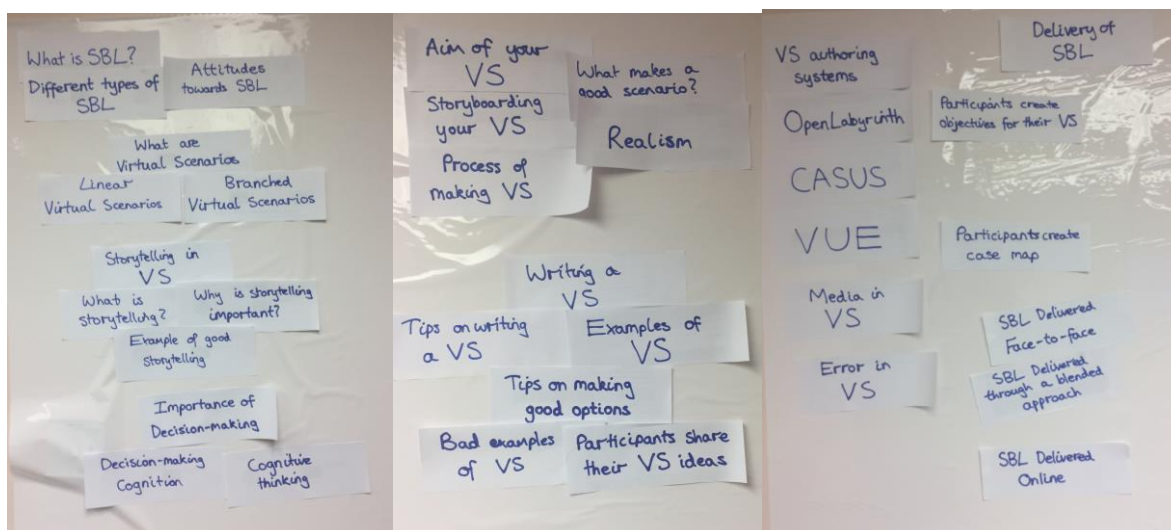 What is SBL?
Different types of
SBL
Attitudes
towards SBL
What are
Virtual Scenarios
Linear
Virtual Scenarios
Branched
Virtual Scenarios
Storytelling in
VS
What is
storytelling?
Why is storytelling
important?
Example of good
storytelling
Importance of
Decision-making
Decision-making
Cognition
Cognitive
thinking
Aim of your
VS
What makes a
good scenario?
Storyboarding
your VS
Realism
Process of
making VS
Writing a
VS
Tips on writing
a VS
Examples of
VS
Tips on making
good options
Bad examples
of VS
Participants share
their VS ideas
VS authoring
systems
OpenLabyrinth
CASUS
VUE
Media in
VS
Error in
VS
Delivery of
SBL
Participants create
objectives for their VS
Participants create
case map
SBL Delivered
Face-to-face
SBL Delivered
through a blended
approach
SBL Delivered
Online